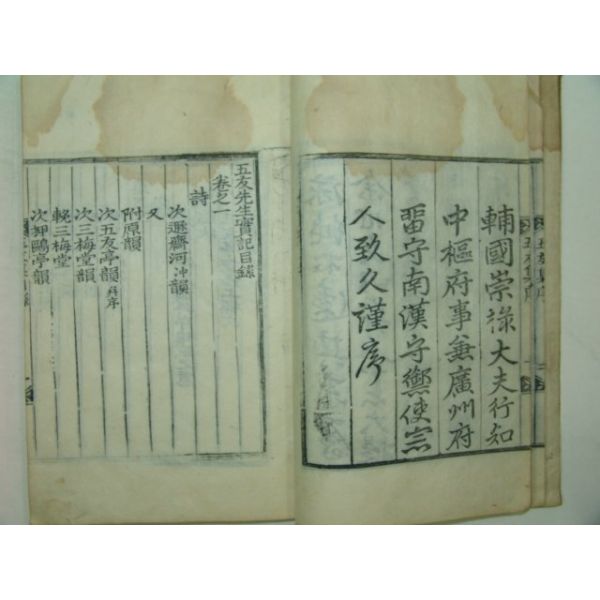 輔國崇祿大夫行知
中樞府事兼廣州府
留守南漢守禦使宗
人致久謹序
五友先生實記目錄
卷之一
詩
次遯齋河冲韻
又
附原韻
次五友亭韻并序
次三梅堂韻
輓三梅堂
次狎鷗亭韻